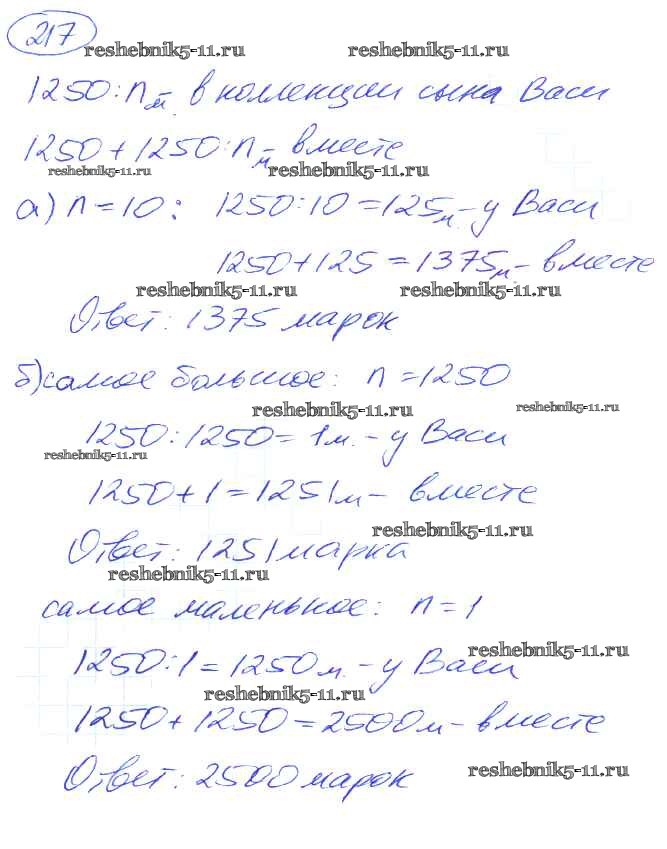 217
reshebnik5-11.ru reshebnik5-11.ru
1250:n м - в коллекции сына Васи
1250+1250:n м - вместе
reshebnik5-11.ru reshebnik5-11.ru
а) n=10: 1250:10=125м - у Васи
1250+125=1375м - вместе
reshebnik5-11.ru reshebnik5-11.ru
Ответ: 1375 марок
б) самое большое: n=1250
reshebnik5-11.ru reshebnik5-11.ru
1250:1250=1м. - у Васи
reshebnik5-11.ru
1250+1=1251м - вместе
reshebnik5-11.ru
Ответ: 1251 марка
reshebnik5-11.ru
самое маленькое: n=1
reshebnik5-11.ru
1250:1=1250м. - у Васи
reshebnik5-11.ru
1250+1250=2500м - вместе
reshebnik5-11.ru
Ответ: 2500 марок